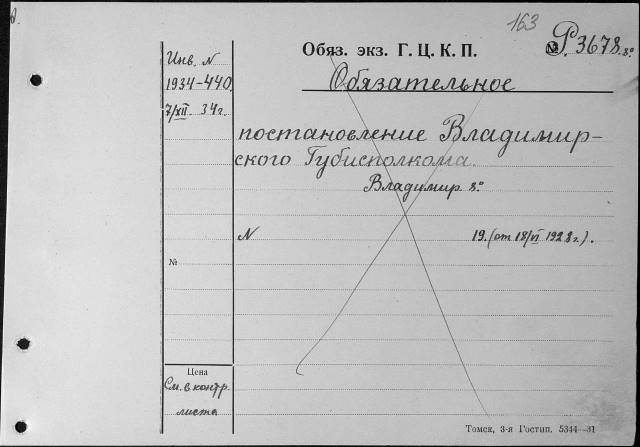 163
Обяз. экз. Г. Ц. К. П.
№ Р. 3678. 8°
Инв. N
1934-440
7/XII. 34г.
Обязательное
постановление Владимир-
ского Губисполкома.
Владимир. 8°
N 19. (от 18/VI 1928г.).
№
Цена
См. в контр.
листа
Томск, 3-я Гостип. 5344—31